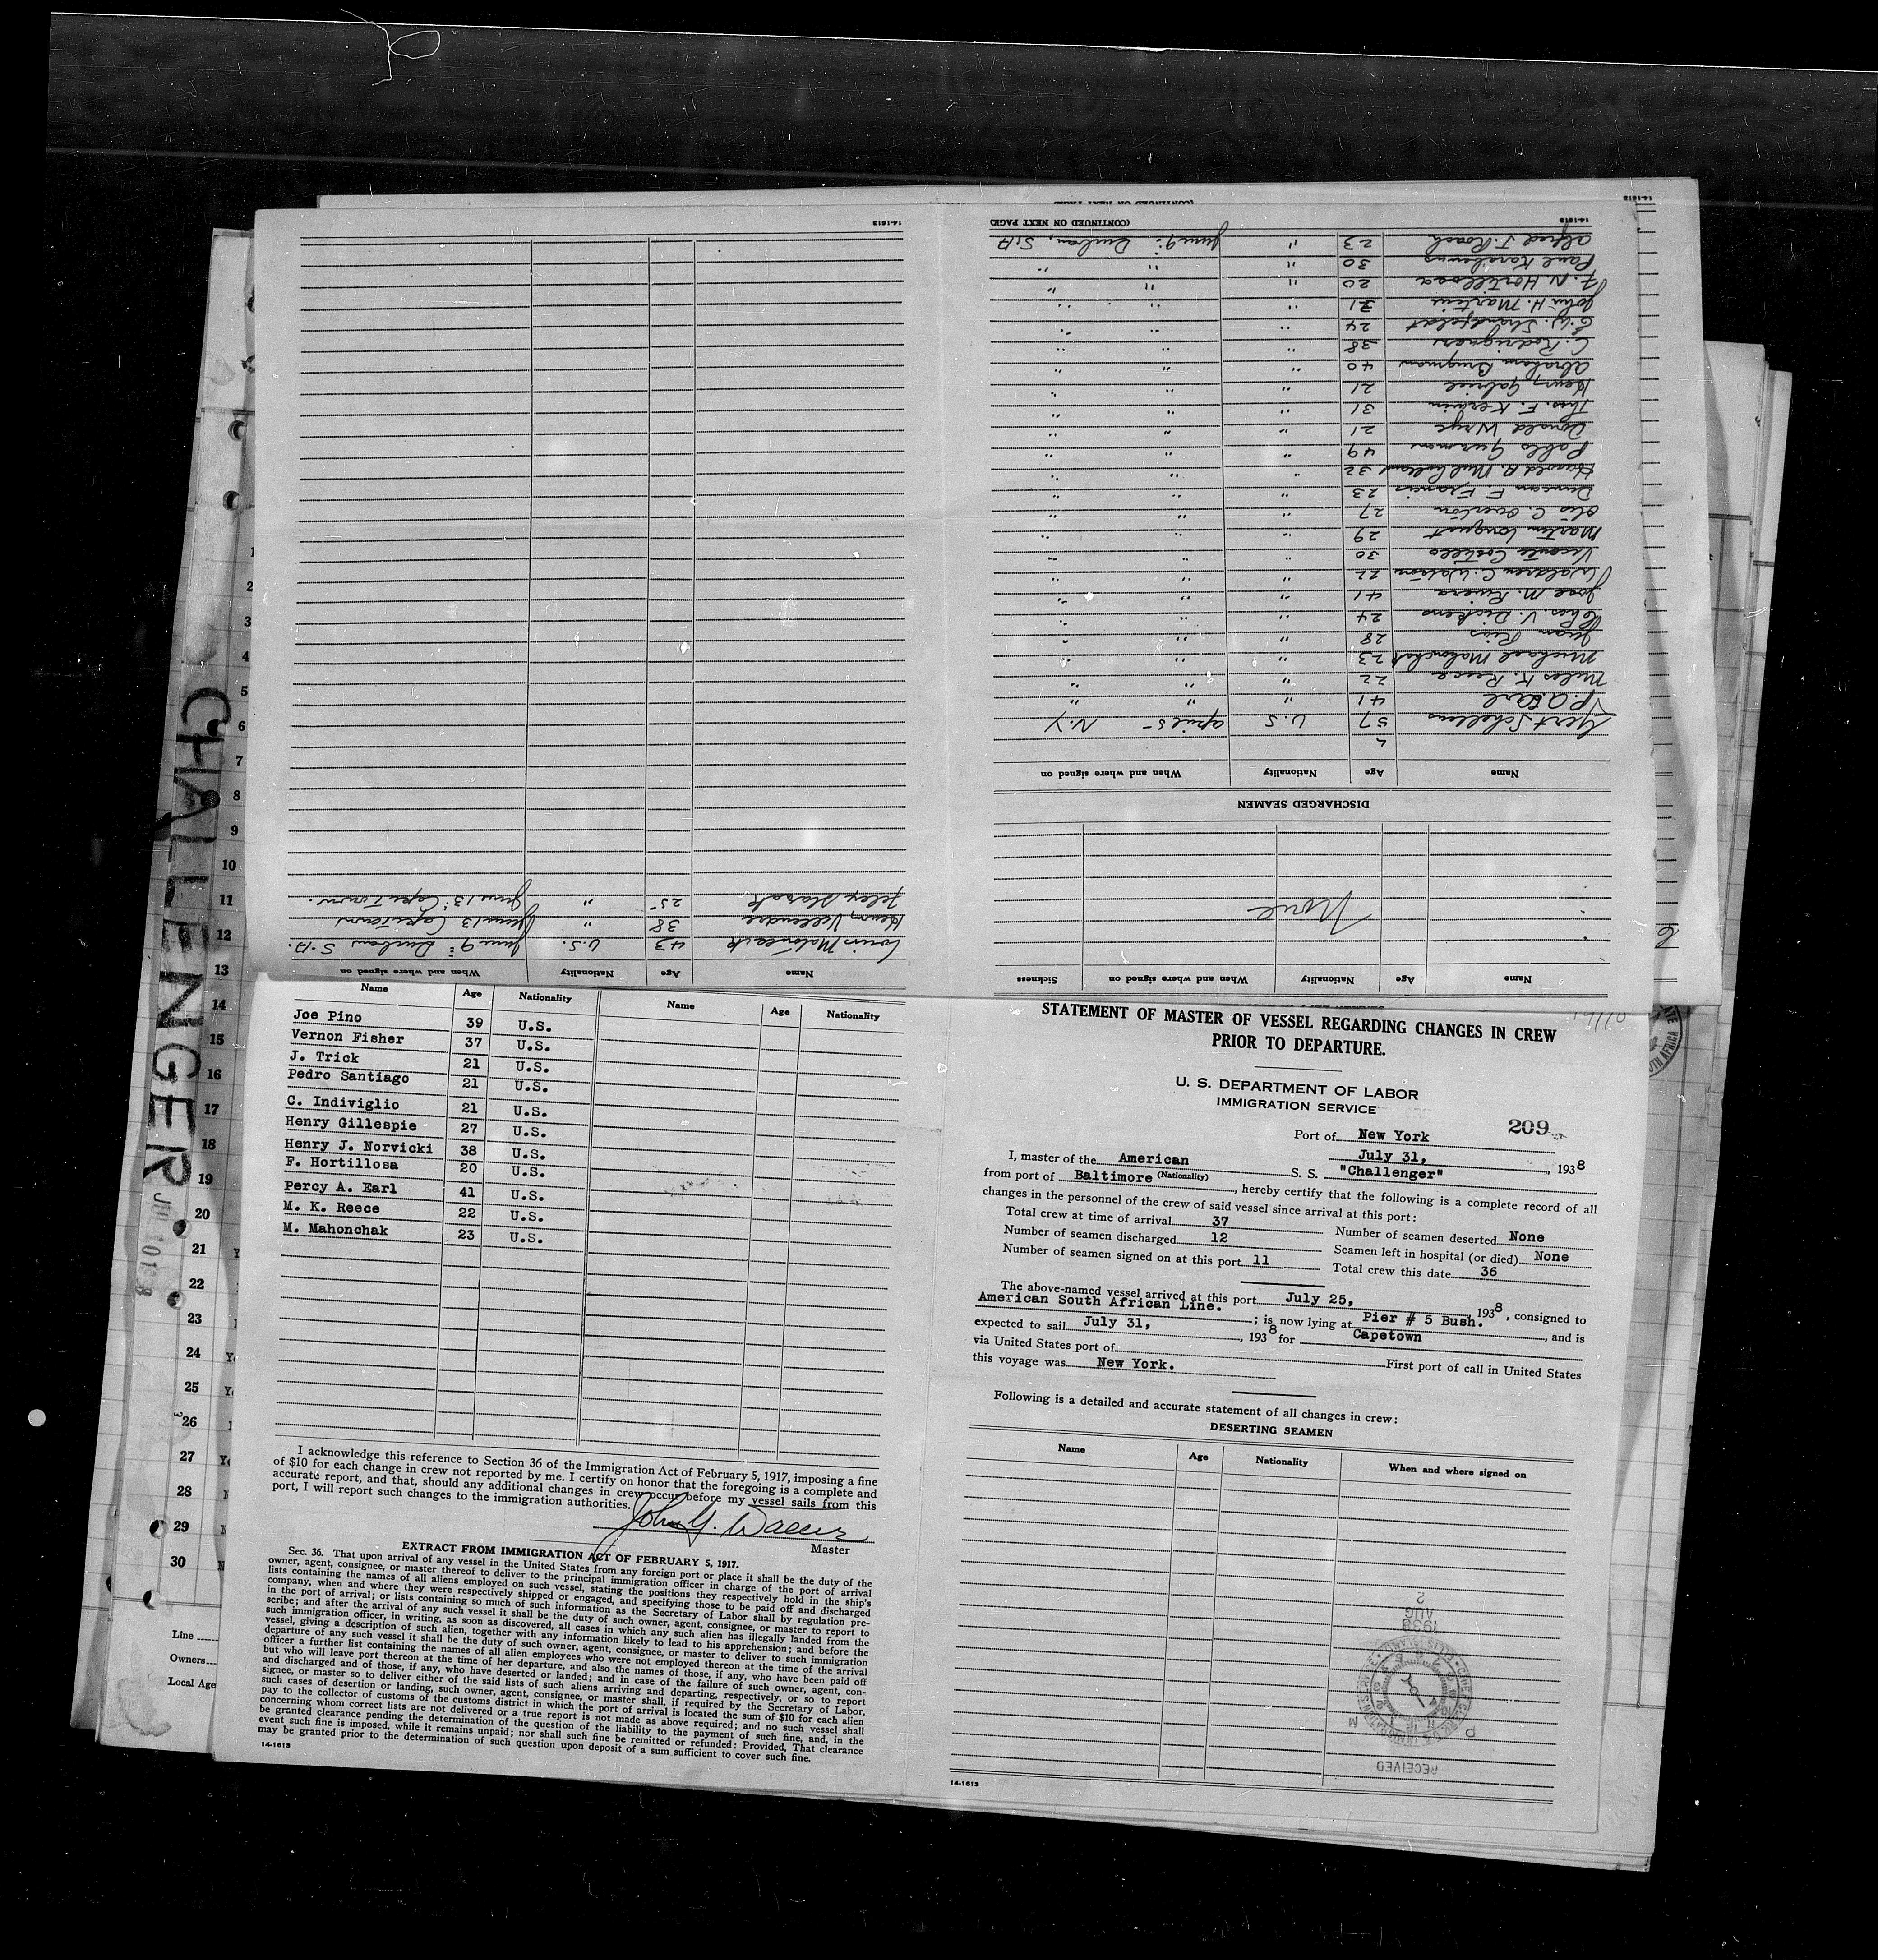 CHALLENGER
JUL 10 1938
1
2
3
4
5
6
7
8
9
10
11
12
13
14
15
16
17
18
19
20
21
22
23
24
25
26
27
28
29
30
Line
Owners
Local Age
14-1613
Name Age Nationality When and where signed on
Louis 43 U.S. June 9 Durban S.A.
Henry 38 " June 13 Capetown
Felix 25 " June 13 Capetown
14-1613
Name Age Nationality When and where signed on Sickness
None
DISCHARGED SEAMEN
Name Age Nationality When and where signed on
Gert Schellens 57 U.S. April 5 N.Y.
P. A. Earl 41 " " "
Miles K. Reece 22 " " "
Michael Mahonchak 23 " " "
Juan Rios 28 " " "
Chas. V. Dickens 24 " " "
Jose M. Rivera 41 " " "
Waldren C. Watson 22 " " "
Vicente Costello 30 " " "
Martin Longuest 29 " " "
Otis C. Overton 27 " " "
Duncan F. Francis 23 " " "
Harold A. Mulholland 32 " " "
Pablo Guzman 49 " " "
Donald Wrye 21 " " "
Thos. F. Kerwin 31 " " "
Henry Gabriel 21 " " "
Abraham Brugman 40 " " "
C. Rodriguers 38 " " "
E. W. 24 " " "
John H. Martin 31 " " "
F. N. Hortillosa 20 " " "
Paul 30 " " "
Alfred J. Roach 23 " June 9 Durban, S.A.
(CONTINUED ON NEXT PAGE)
14-1613
Name Age Nationality Name Age Nationality
Joe Pino 39 U.S.
Vernon Fisher 37 U.S.
J. Trick 21 U.S.
Pedro Santiago 21 U.S.
C. Indiviglio 21 U.S.
Henry Gillespie 27 U.S.
Henry J. Norvicki 38 U.S.
F. Hortillosa 20 U.S.
Percy A. Earl 41 U.S.
M. K. Reece 22 U.S.
M. Mahonchak 23 U.S.
I acknowledge this reference to Section 36 of the Immigration Act of February 5, 1917, imposing a fine
of $10 for each change in crew not reported by me. I certify on honor that the foregoing is a complete and
accurate report, and that, should any additional changes in crew occur before my vessel sails from this
port, I will report such changes to the immigration authorities.
John G. Waller
Master
EXTRACT FROM IMMIGRATION ACT OF FEBRUARY 5, 1917.
Sec. 36. That upon arrival of any vessel in the United States from any foreign port or place it shall be the duty of the
owner, agent, consignee, or master thereof to deliver to the principal immigration officer in charge of the port of arrival
lists containing the names of all aliens employed on such vessel, stating the positions they respectively hold in the ship's
company, when and where they were respectively shipped or engaged, and specifying those to be paid off and discharged
in the port of arrival; or lists containing so much of such information as the Secretary of Labor shall by regulation pre-
scribe; and after the arrival of any such vessel it shall be the duty of such owner, agent, consignee, or master to report to
such immigration officer, in writing, as soon as discovered, all cases in which any such alien has illegally landed from the
vessel, giving a description of such alien, together with any information likely to lead to his apprehension; and before the
departure of any such vessel it shall be the duty of such owner, agent, consignee, or master to deliver to such immigration
officer a further list containing the names of all alien employees who were not employed thereon at the time of the arrival
but who will leave port thereon at the time of her departure, and also the names of those, if any, who have been paid off
and discharged and of those, if any, who have deserted or landed; and in case of the failure of such owner, agent, con-
signee, or master so to deliver either of the said lists of such aliens arriving and departing, respectively, or so to report
such cases of desertion or landing, such owner, agent, consignee, or master shall, if required by the Secretary of Labor,
pay to the collector of customs of the customs district in which the port of arrival is located the sum of $10 for each alien
concerning whom correct lists are not delivered or a true report is not made as above required; and no such vessel shall
be granted clearance pending the determination of the question of the liability to the payment of such fine, and, in the
event such fine is imposed, while it remains unpaid; nor shall such fine be remitted or refunded: Provided, That clearance
may be granted prior to the determination of such question upon deposit of a sum sufficient to cover such fine.
14-1613
STATEMENT OF MASTER OF VESSEL REGARDING CHANGES IN CREW
PRIOR TO DEPARTURE.
U. S. DEPARTMENT OF LABOR
IMMIGRATION SERVICE
209
Port of New York
July 31, 1938
I, master of the American S. S. "Challenger"
(Nationality)
from port of Baltimore, hereby certify that the following is a complete record of all
changes in the personnel of the crew of said vessel since arrival at this port:
Total crew at time of arrival 37 Number of seamen deserted None
Number of seamen discharged 12 Seamen left in hospital (or died) None
Number of seamen signed on at this port 11 Total crew this date 36
The above-named vessel arrived at this port July 25, 1938, consigned to
American South African Line. ; is now lying at Pier # 5 Bush. , and is
expected to sail July 31, 1938 for Capetown
via United States port of First port of call in United States
this voyage was New York.
Following is a detailed and accurate statement of all changes in crew:
DESERTING SEAMEN
Name Age Nationality When and where signed on
RECEIVED
1938 AUG 2
14-1613